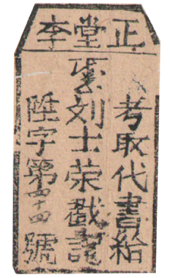 正堂李
考取代書給
刘士荣戳記
陞字第四十四號